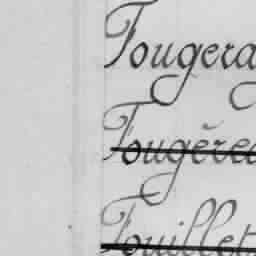 Fougera
Fougèrea
Fouillet